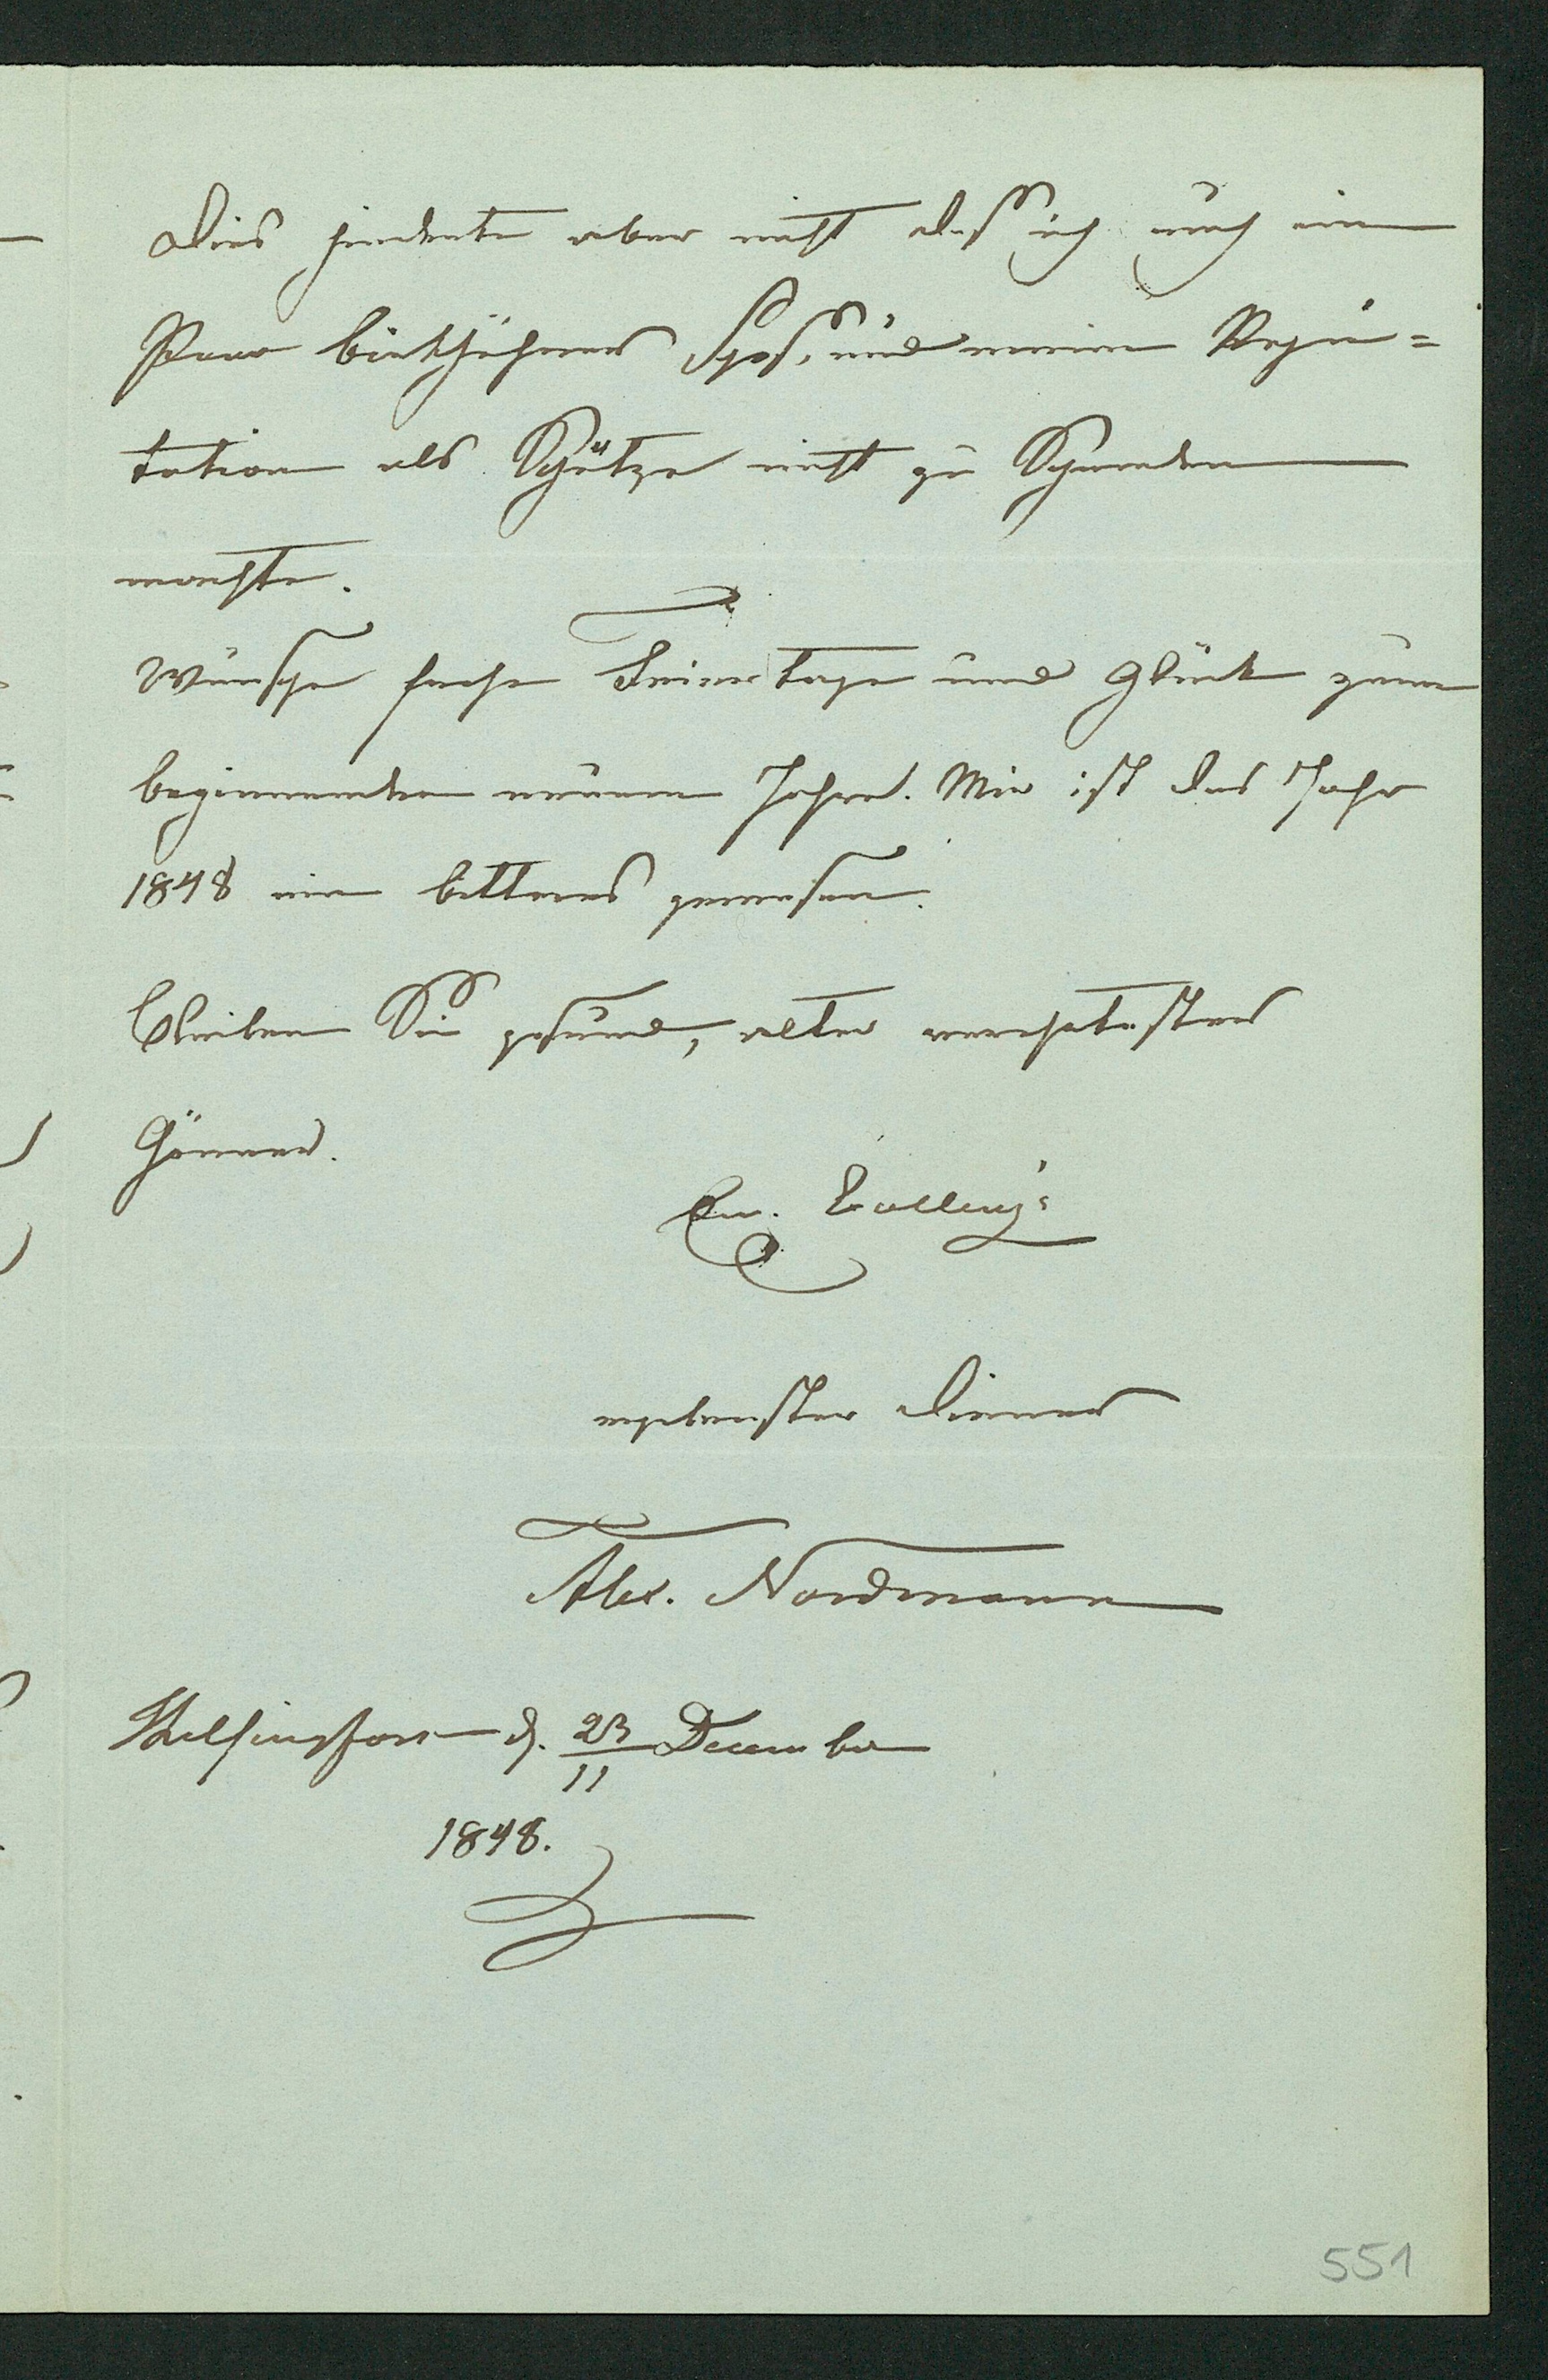 Dies hinderte aber nicht daß ich noch ein
Paar Birkhühner schoß, und meine Repu=
tation als Schütze nicht zu Schanden
machte.
Wünsche frohe Feiertage und Glück zum
beginnenden neuen Jahre. Mir ist das Jahr
1848 ein bitteres gewesen.
Bleiben Sie gesund, alter verehrtester
Gönner.
Ew.
ergebenster Diener
Alex. Nordmann
Helsingfors d. 23/11 December
1848.
551